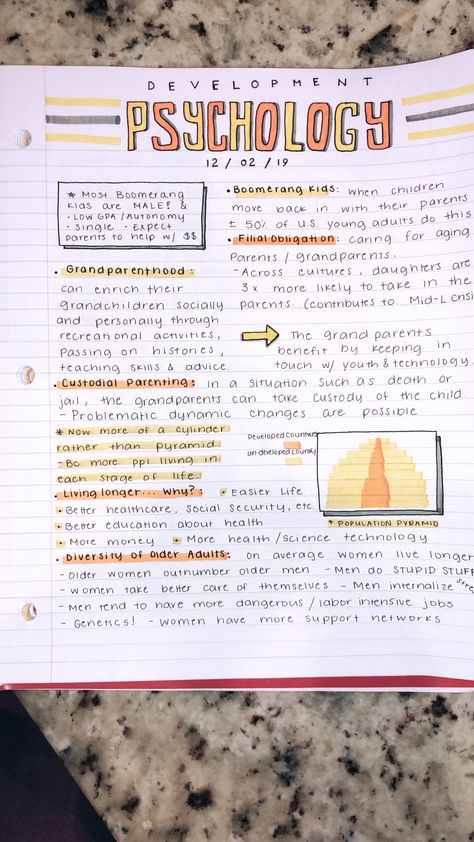 DEVELOPMENT
PSYCHOLOGY
12/02/19
* MOST BOOMERANG
KIDS ARE MALE? &
• LOW GPA/AUTONOMY
• SINGLE • EXPECT
PARENTS TO HELP W/ $$
• Boomerang Kids: when children
move back in with their parents
± 50% of U.S. young adults do this
• Filial Obligation: caring for aging
Parents / grandparents.
- Across cultures, daughters are
3x more likely to take in the
parents. (contributes to Mid-L
• Grandparenthood:
can enrich their
grandchildren socially
and personally through
recreational activities,
Passing on histories,
teaching skills & advice.
The grand parents
benefit by keeping in
touch w/ youth & technology.
• Custodial Parenting: in a situation such as death or
jail, the grandparents can take custody of the child
- Problematic dynamic changes are possible
* Now more of a cylinder
rather than pyramid.
- Bc more ppl living in
each stage of life.
Developed Countries
un-developed country
* POPULATION PYRAMID
• Living longer... Why?: • Easier Life
• Better healthcare, social security, etc.
• Better education about health
• More money • More health/science technology
• Diversity of Older Adults: on average women live longer
- Older women outnumber older men - Men do STUPID STUFF
- women take better care of themselves - Men internalize
- Men tend to have more dangerous / labor intensive jobs
- Genetics! - Women have more support networks